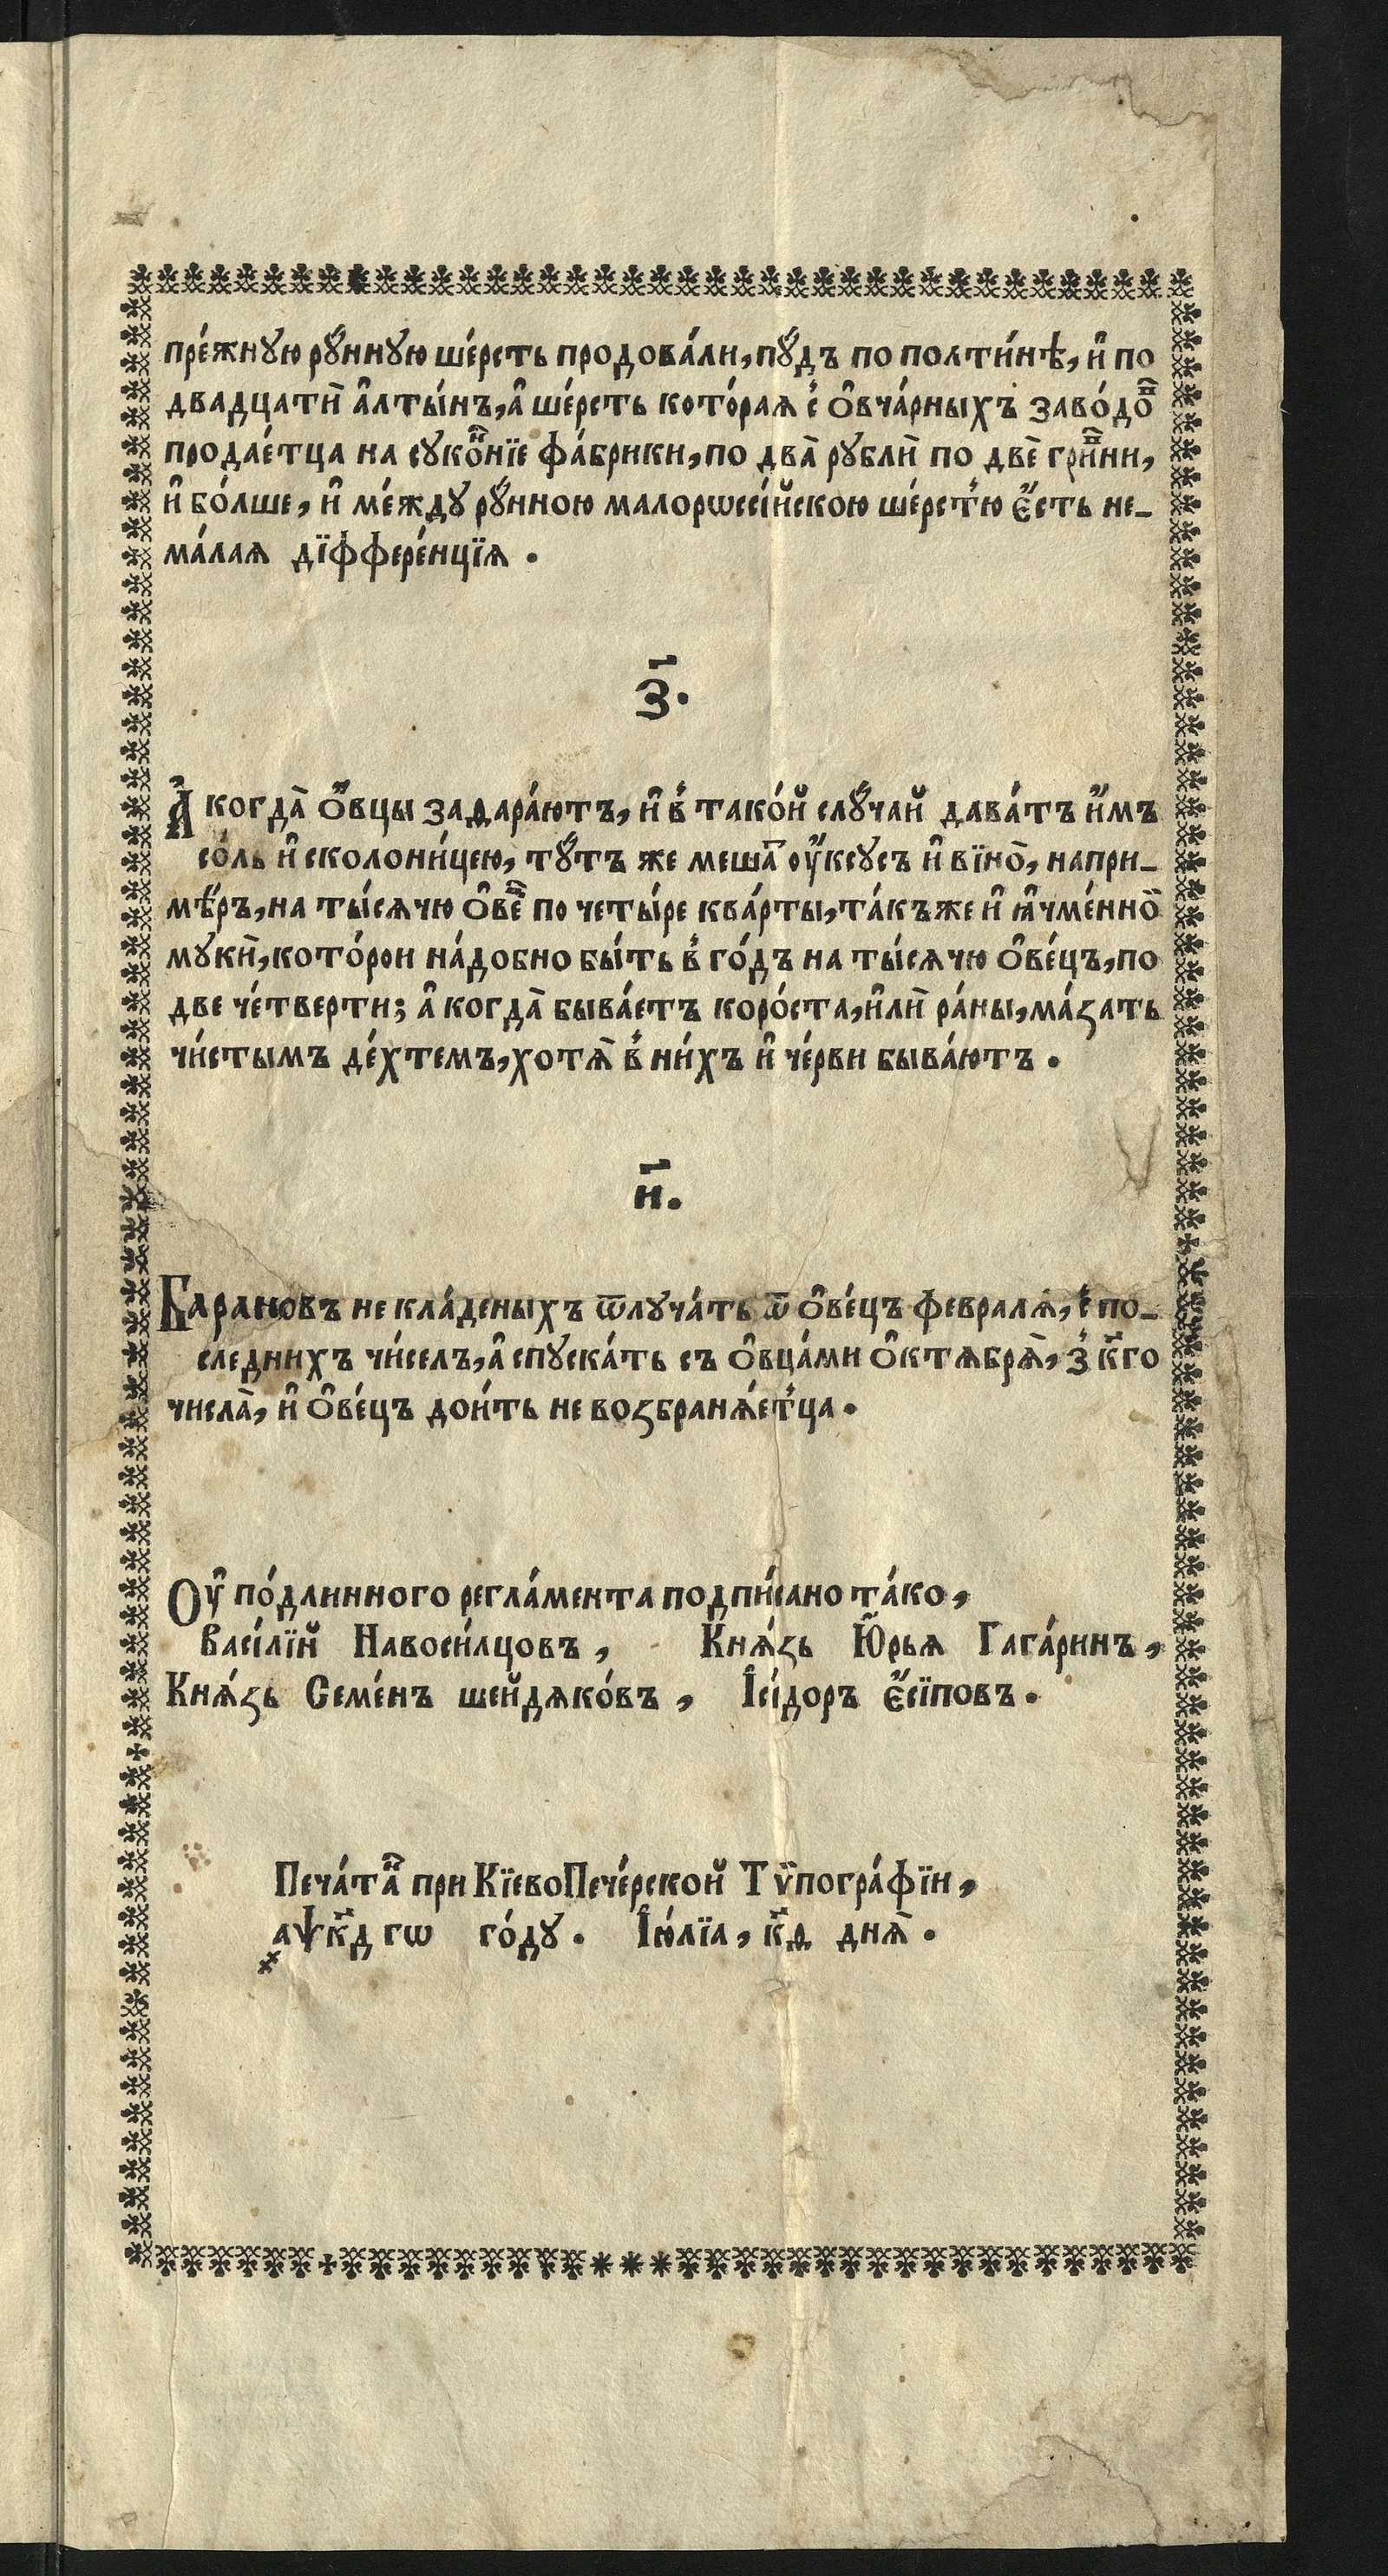 пре́жнꙋю рꙋ́ннꙋю ше́рсть продова́ли, пꙋ́дъ по полти́нѣ, и҆ по
двадцатѝ а҆лты́нъ, а҆ ше́рсть кото́рая с̾ ѻ҆вча́рныхъ заво́доⷡ҇
продае́тца на сꙋко́ⷩ҇нїе фа́брики, по два̀ рꙋблѝ по двѐ гри́ⷡ҇ни,
и҆ бо́лше, и҆ ме́ждꙋ рꙋ́нною малорѡссі́йскою ше́рст̾ю є҆́сть не-
ма́лая дїффере́нцїя .
З҃.
А҆ когда̀ ѻ҆́вцы задара́ютъ, и҆ в̾ тако́й слꙋ́чай дава́тъ и҆́мъ
со́ль и҆ сколони́цею, тꙋ́тъ же меша́ⷮ оу҆́ксꙋсъ и҆ вїно̀, напри-
мѣ́ръ, на ты́сячю ѻ҆ве́ⷰ҇ по четы́ре ква́рты, та́къ же и҆ ꙗ҆чме́нно̆
мꙋкѝ, кото́рои на́добно бы́ть в̾ го́дъ на ты́сячю ѻ҆ве́цъ, по
две че́тверти; а҆ когда̀ быва́етъ коро́ста, и҆лѝ ра́ны, ма́ꙁать
чи́стымъ де́хтемъ, хотя̀ в̾ ни́хъ и҆ че́рви быва́ютъ .
И҃.
Барановъ не кла́деныхъ ѿлꙋча́ть ѿ ѻ҆ве́цъ февраля̀, с̾ по-
следнихъ чи́селъ, а҆ спꙋска́ть съ ѻ҆вца́ми ѻ҆ктября̀, з̾ к҃го
числа̀, и҆ ѻ҆ве́цъ дои́ть не воꙁбраня́ет̾ца .
Оу҆ по́длинного регла́мента подпи́сано та́ко,
Васі́лїй Навоси́лцовъ , Кня́ꙁь Ю҆́рья Гага́ринъ ,
Кня́ꙁь Семе́нъ шейдяко́въ , І҆сі́доръ є҆́сїповъ .
Печа́таⷩ҇ при КїевоПече́рской Тѷпогра́фїи ,
҂аѱк҃д гѡ го́дꙋ . І҆ю́лїа , к҃д дня̀ .